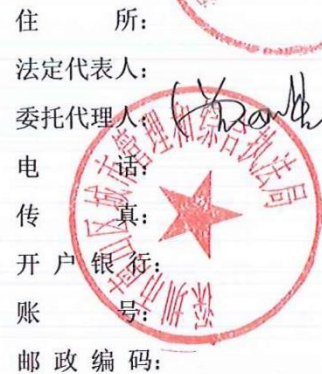 住 所：
法定代表人：
委托代理人：
电 话：
传 真：
开 户 银 行：
账 号：
邮 政 编 码：
深圳市南山区城市管理和综合执法局